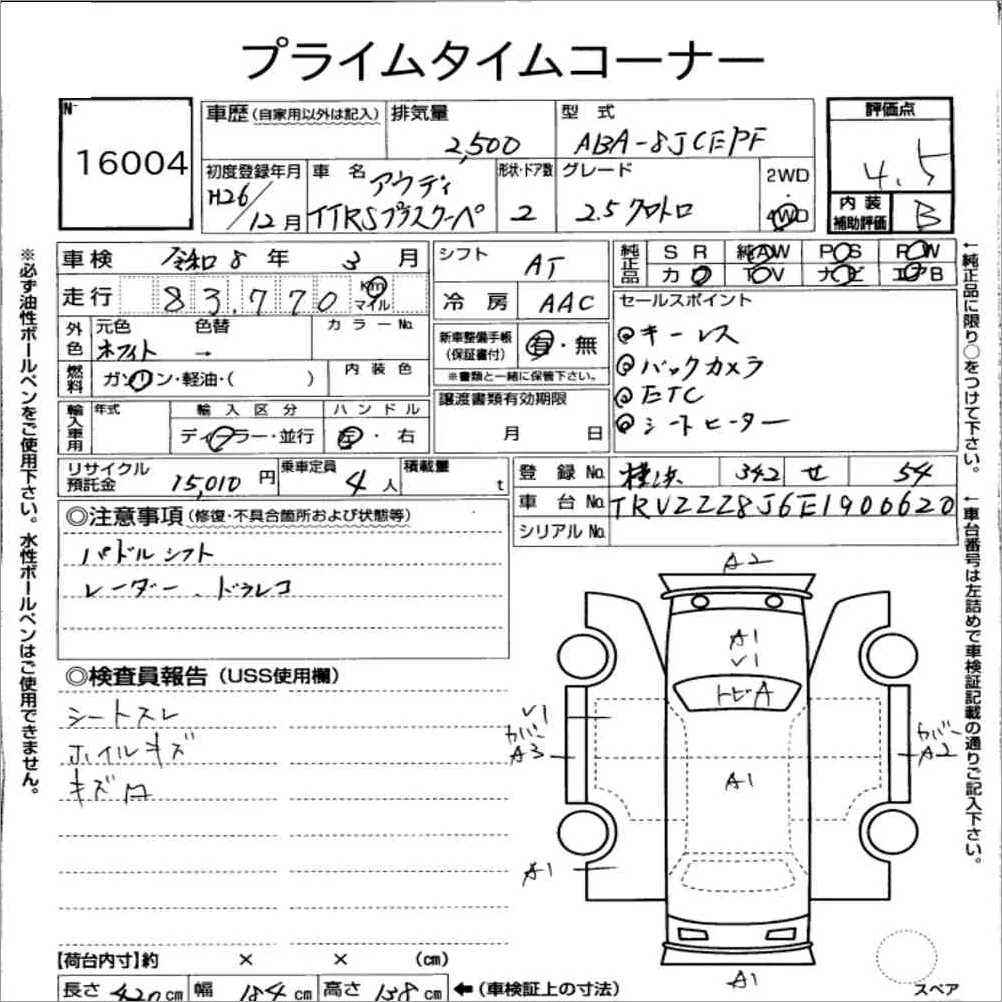 プライムタイムコーナー
№
16004
車歴（自家用以外は記入）
排気量
2,500
型 式
ABA-8JCEPF
評価点
4.5
初度登録年月
H26/12月
車 名
アウディ
TTRSプラスクーペ
形状・ドア数
2
グレード
2.5 クワトロ
2WD
4WD
内 装
補助評価
B
車検 令和 8 年 3 月
走行 83,770 km マイル
シフト AT
冷 房 AAC
純正品
S R 純AW P○S P○W
カ○ T○V ナ○ビ エ○B
外色
元色 ホワイト
色替 →
カラーNo.
燃料
ガソリン・軽油・( )
内 装 色
新車整備手帳
（保証書付）
有・無
※書類と一緒に保管下さい。
セールスポイント
◎キーレス
◎バックカメラ
◎ETC
◎シートヒーター
輸入車用
年式
輸 入 区 分
ディーラー・並行
ハ ン ド ル
左・右
譲渡書類有効期限
月 日
リサイクル
預託金
15,010 円
乗車定員
4 人
積載量
t
登 録 No. 横浜 342 せ 54
車 台 No. TRUZZZ8J6E1900620
シリアルNo.
◎注意事項（修復・不具合箇所および状態等）
パドルシフト
レーダー、ドラレコ
◎検査員報告（USS使用欄）
シートスレ
ホイルキズ
キズ凹
A2
A1
V1
トビA
V1
カバー
A3
カバー
A2
A1
A1
A1
スペア
【荷台内寸】約 × × (cm)
長さ 420 cm 幅 184 cm 高さ 138 cm ←（車検証上の寸法）
※必ず油性ボールペンをご使用下さい。水性ボールペンはご使用できません。
←純正品に限り○をつけて下さい。
←車台番号は左詰めで車検証記載の通りご記入下さい。